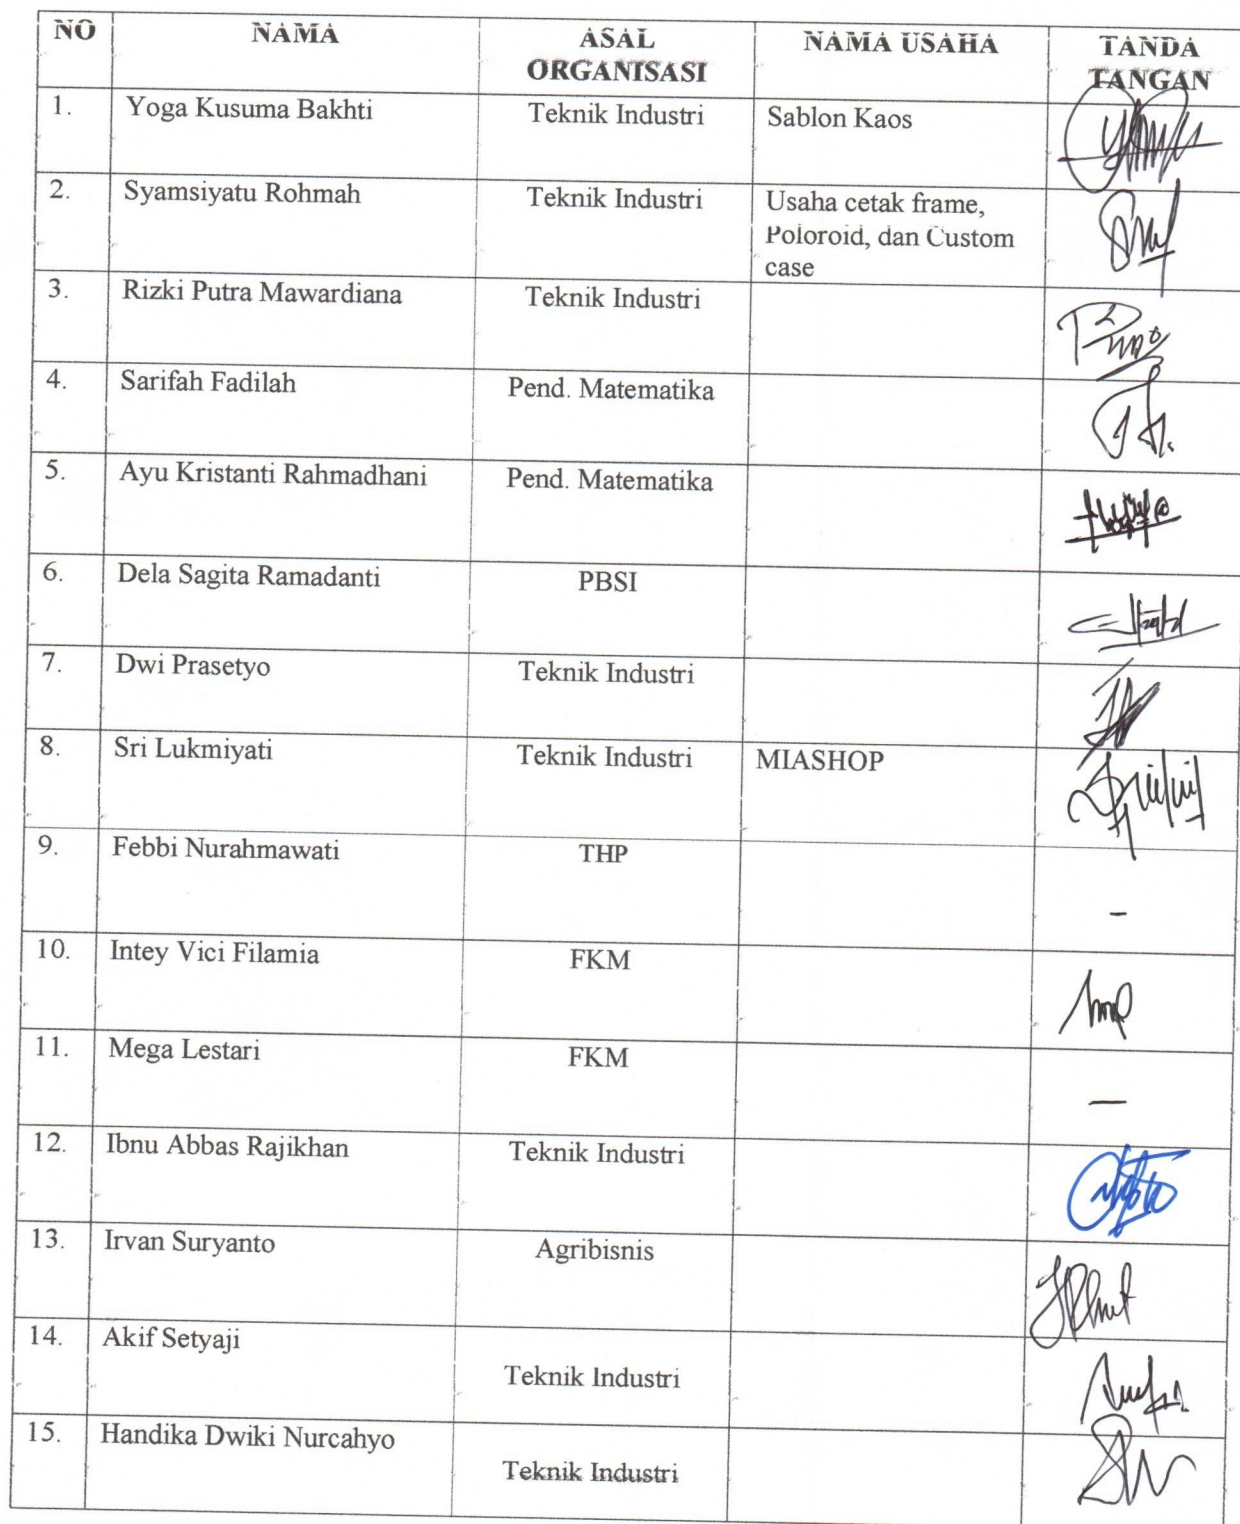 NO NAMA ASAL ORGANISASI NAMA USAHA TANDA TANGAN
1. Yoga Kusuma Bakhti Teknik Industri Sablon Kaos
2. Syamsiyatu Rohmah Teknik Industri Usaha cetak frame,
Poloroid, dan Custom
case
3. Rizki Putra Mawardiana Teknik Industri
4. Sarifah Fadilah Pend. Matematika
5. Ayu Kristanti Rahmadhani Pend. Matematika
6. Dela Sagita Ramadanti PBSI
7. Dwi Prasetyo Teknik Industri
8. Sri Lukmiyati Teknik Industri MIASHOP
9. Febbi Nurahmawati THP -
10. Intey Vici Filamia FKM
11. Mega Lestari FKM —
12. Ibnu Abbas Rajikhan Teknik Industri
13. Irvan Suryanto Agribisnis
14. Akif Setyaji Teknik Industri
15. Handika Dwiki Nurcahyo Teknik Industri